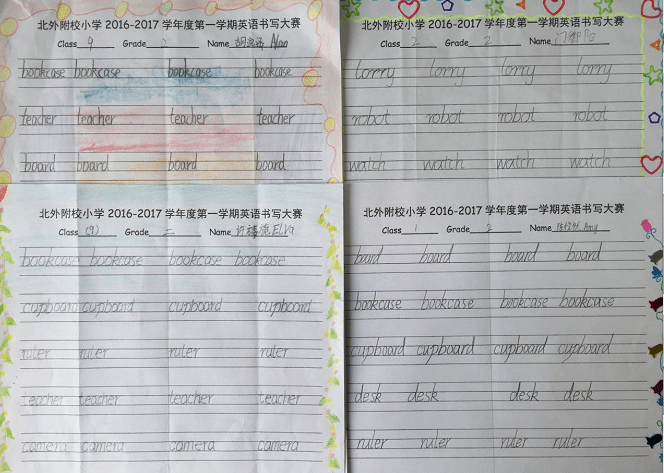 北外附校小学 2016-2017 学年度第一学期英语书写大赛
Class 9 Grade 2 Name Alan
bookcase bookcase bookcase bookcase
teacher teacher teacher teacher
board board board board
北外附校小学 2016-2017 学年度第一学期英语书写大赛
Class 2 Grade 2 Name
lorry lorry lorry lorry
robot robot robot robot
watch watch watch watch
北外附校小学 2016-2017 学年度第一学期英语书写大赛
Class (9) Grade 二 Name Elva
bookcase bookcase bookcase bookcase
cupboard cupboard cupboard cupboard
ruler ruler ruler ruler
teacher teacher teacher teacher
camera camera camera camera
北外附校小学 2016-2017 学年度第一学期英语书写大赛
Class 1 Grade 2 Name Amy
board board board board
bookcase bookcase bookcase bookcase
cupboard cupboard cupboard cupboard
desk desk desk desk
ruler ruler ruler ruler